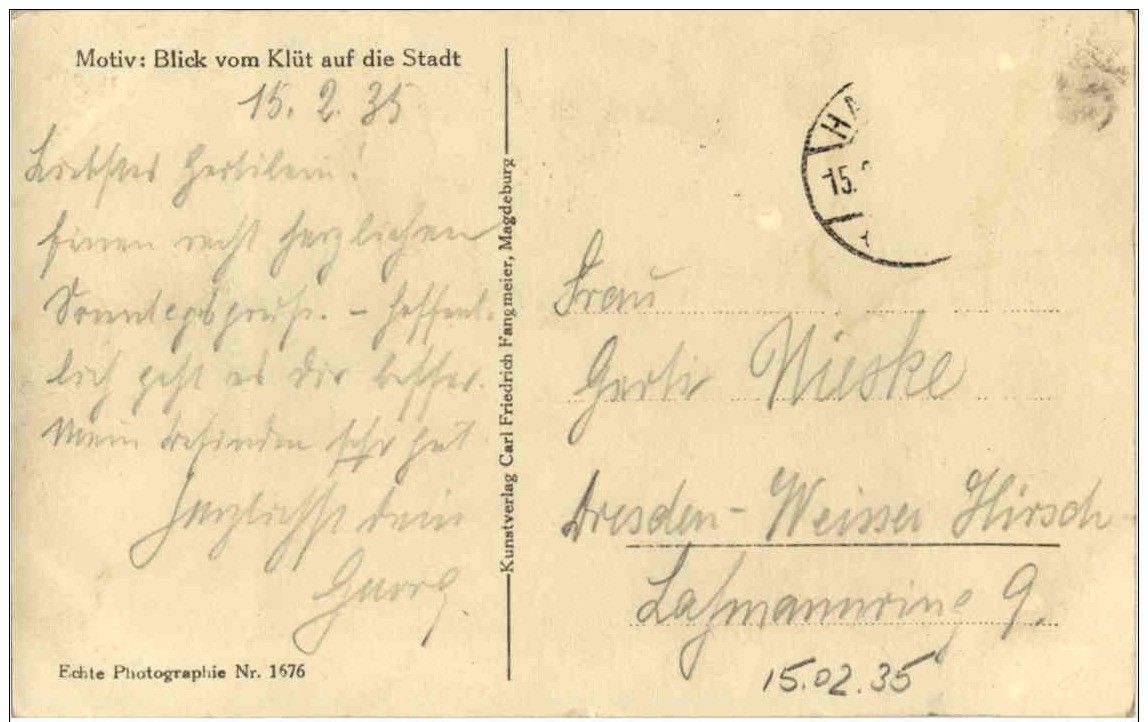 Motiv: Blick vom Klüt auf die Stadt
15. 2. 35
Liebstes Gertilein!
Einen recht herzlichen
Sonntagsgruß. – Hoffent-
lich geht es dir besser.
Mein Befinden sehr gut
Herzlichst dein
Georg.
Echte Photographie Nr. 1676
Kunstverlag Carl Friedrich Fangmeier, Magdeburg
HA
15.
Frau
Gerti Nieske
Dresden-Weisser Hirsch
Lahmannring 9.
15.02.35